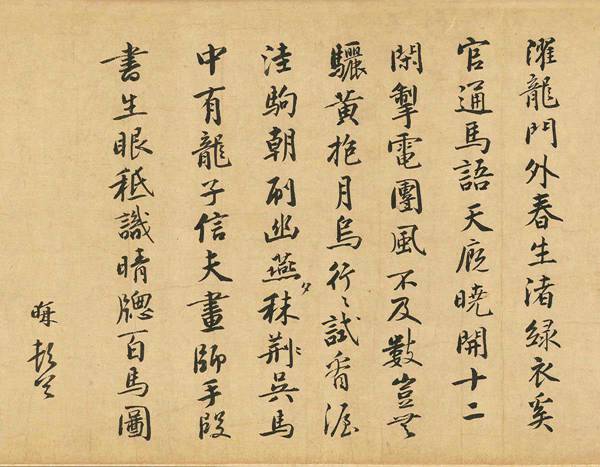 濯龍門外春生渚綠衣奚
官通馬語天廐曉開十二
閑掣電團風不及數豈无
驪黃抱月烏行〻試看渥
洼駒朝刷幽燕夕秣荊吳馬
中有龍子信夫畫師手段
書生眼秪識晴牎百馬圖